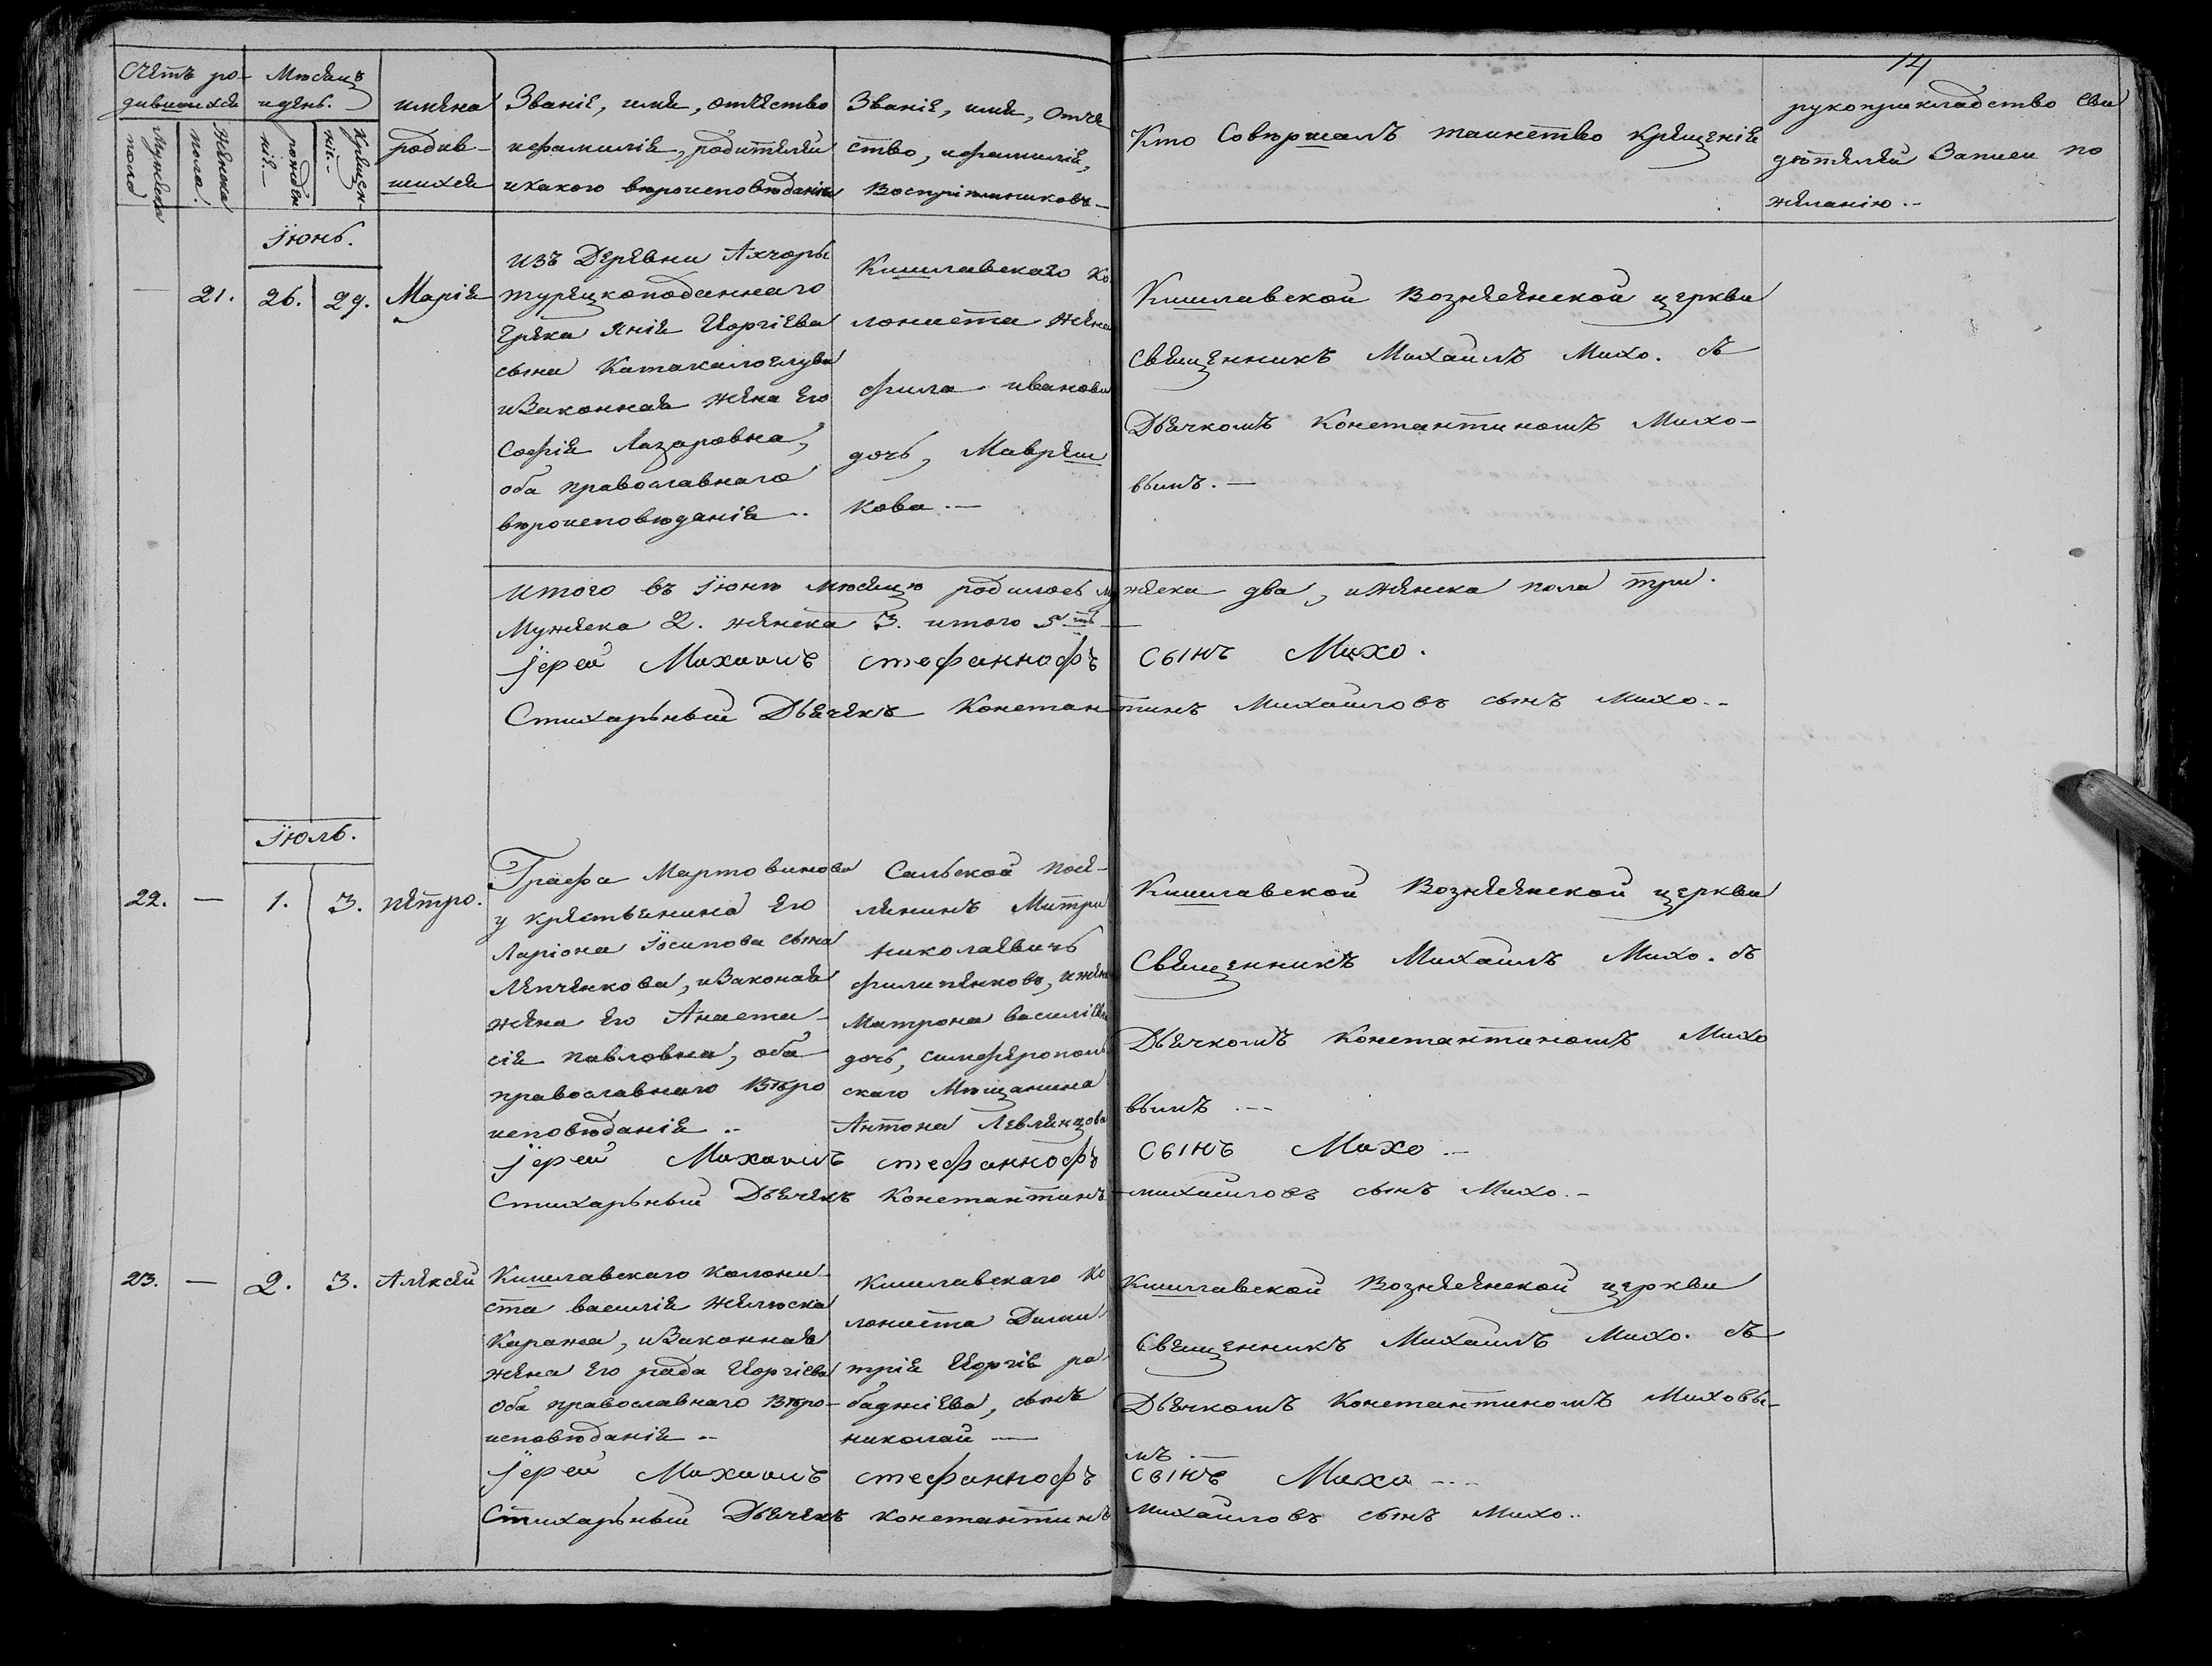 14
Счетъ ро-
дившихся
Мужеска
пола
Женска
пола.
Месяцъ
и день.
рожден
ніе.
Крещен-
ніе.
имена
родив-
шихся
Званіе, имя, отчество
и фамиліе, родителей
и какого вероисповеданія
Званіе, имя, отче
ство, и фамиліе,
Воспріемниковъ
Кто Совершалъ таинство крещеніе
рукоприкладство Сви
детелей Записи по
желанію.
Іюнь.
— 21. 26. 29. Маріе
изъ Деревни Ахчоры
турецкоподаннаго
Грека Яніе Георгіева
сына
и Законная жена Его
Софіе Лазаровна,
оба православнаго
вероисповеданіе
Кишлавскаго ко
лониста жена
фила иванова
дочь, Мавреш
кова.
Кишлавской Вознесенской церкви
Священникъ Михаилъ Михо. съ
Дьячкомъ Константиномъ Михо-
вымъ.
итого въ Іюне месяце родилось му жеска два, и женска пола три.
Мужеска 2. женска 3. итого 5ть
Іерей Михаилъ стефанпофъ сынъ Михо.
Стихарьный Дьячекъ Константинъ Михаиловъ сынъ Михо.
Іюль.
22. — 1. 3. петро.
Графа Мартовинова
у крестьянина Его
Ларіона Іосипова сына
Лепченкова, и Законая
жена Его Анаста-
сіе павловна, оба
православнаго Веро
исповеданіе
Сальской посе-
ленинъ Митри
николаевичь
филипенковъ, и жена
Матрона василіевна
дочь, симферополь
скаго Мещанина
Антона Левленцова
Кишлавской Вознесенской церкви
Священникъ Михаилъ Михо. съ
Дьячкомъ Константиномъ Михо
вымъ.
Іерей Михаилъ стефанпофъ сынъ Михо.
Стихарьный Дьячекъ Константинъ михаиловъ сынъ Михо.
23. — 2. 3. Алексей
Кишлавскаго колони-
ста василіе желюска
Каража, и Законная
жена Его рада Георгіева
оба православнаго Веро-
исповеданіе
Кишлавскаго ко
лониста Дими
тріе Георгіе ра-
баджіева, сынъ
николай
Кишлавской Вознесенской церкви
Священникъ Михаилъ Михо. съ
Дьячкомъ Константиномъ Миховы-
мъ.
Іерей Михаилъ стефанпофъ сынъ Михо
Стихарьный Дьячекъ константинъ Михаиловъ сынъ Михо.